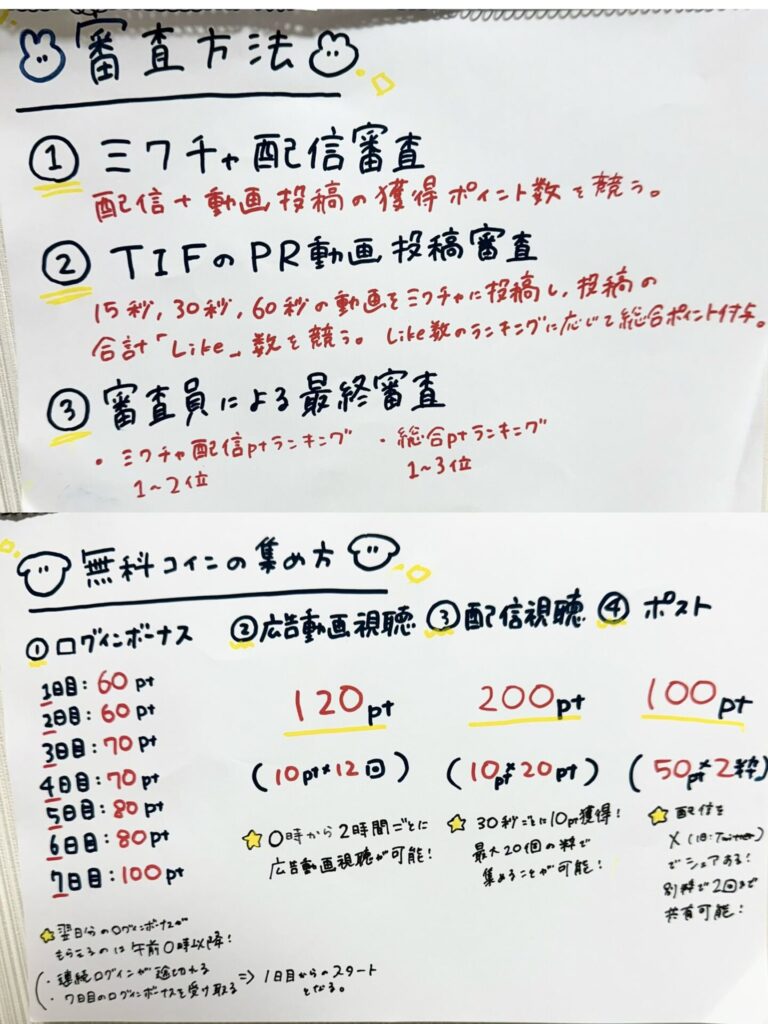 審査方法
① ミクチャ配信審査
配信+動画投稿の獲得ポイント数を競う。
② TIFのPR動画投稿審査
15秒,30秒,60秒の動画をミクチャに投稿し、投稿の
合計「Like」数を競う。Like数のランキングに応じて総合ポイント付与。
③ 審査員による最終審査
・ミクチャ配信ptランキング
1~2位
・総合ptランキング
1~3位
無料コインの集め方
① ログインボーナス
1日目:60pt
2日目:60pt
3日目:70pt
4日目:70pt
5日目:80pt
6日目:80pt
7日目:100pt
翌日分のログインボーナスが
もらえるのは午前0時以降!
(・連続ログインが途切れる
・7日目のログインボーナスを受け取る
⇒ 1日目からのスタート
となる。
② 広告動画視聴
120pt
(10pt×12回)
0時から2時間ごとに
広告動画視聴が可能!
③ 配信視聴
200pt
(10pt×20pt)
30秒ごとに10pt獲得!
最大20個の枠で
集めることが可能!
④ ポスト
100pt
(50pt×2枠)
配信を
X(旧:Twitter)
でシェアする!
別枠で2回まで
共有可能!